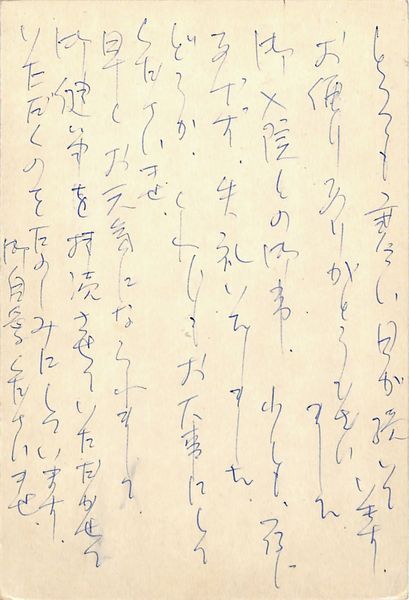 とても寒い日が続いて居ます。
お便りありがとうござい
ました
御入院との御事、少しも存じ
ませず、失礼いたしました
どうか、くれぐれもお大事にして
下さいませ。
早くお元気になられまして
御健筆を持続させていただかせて
いただくのをたのしみにしています。
御自愛下さいませ。